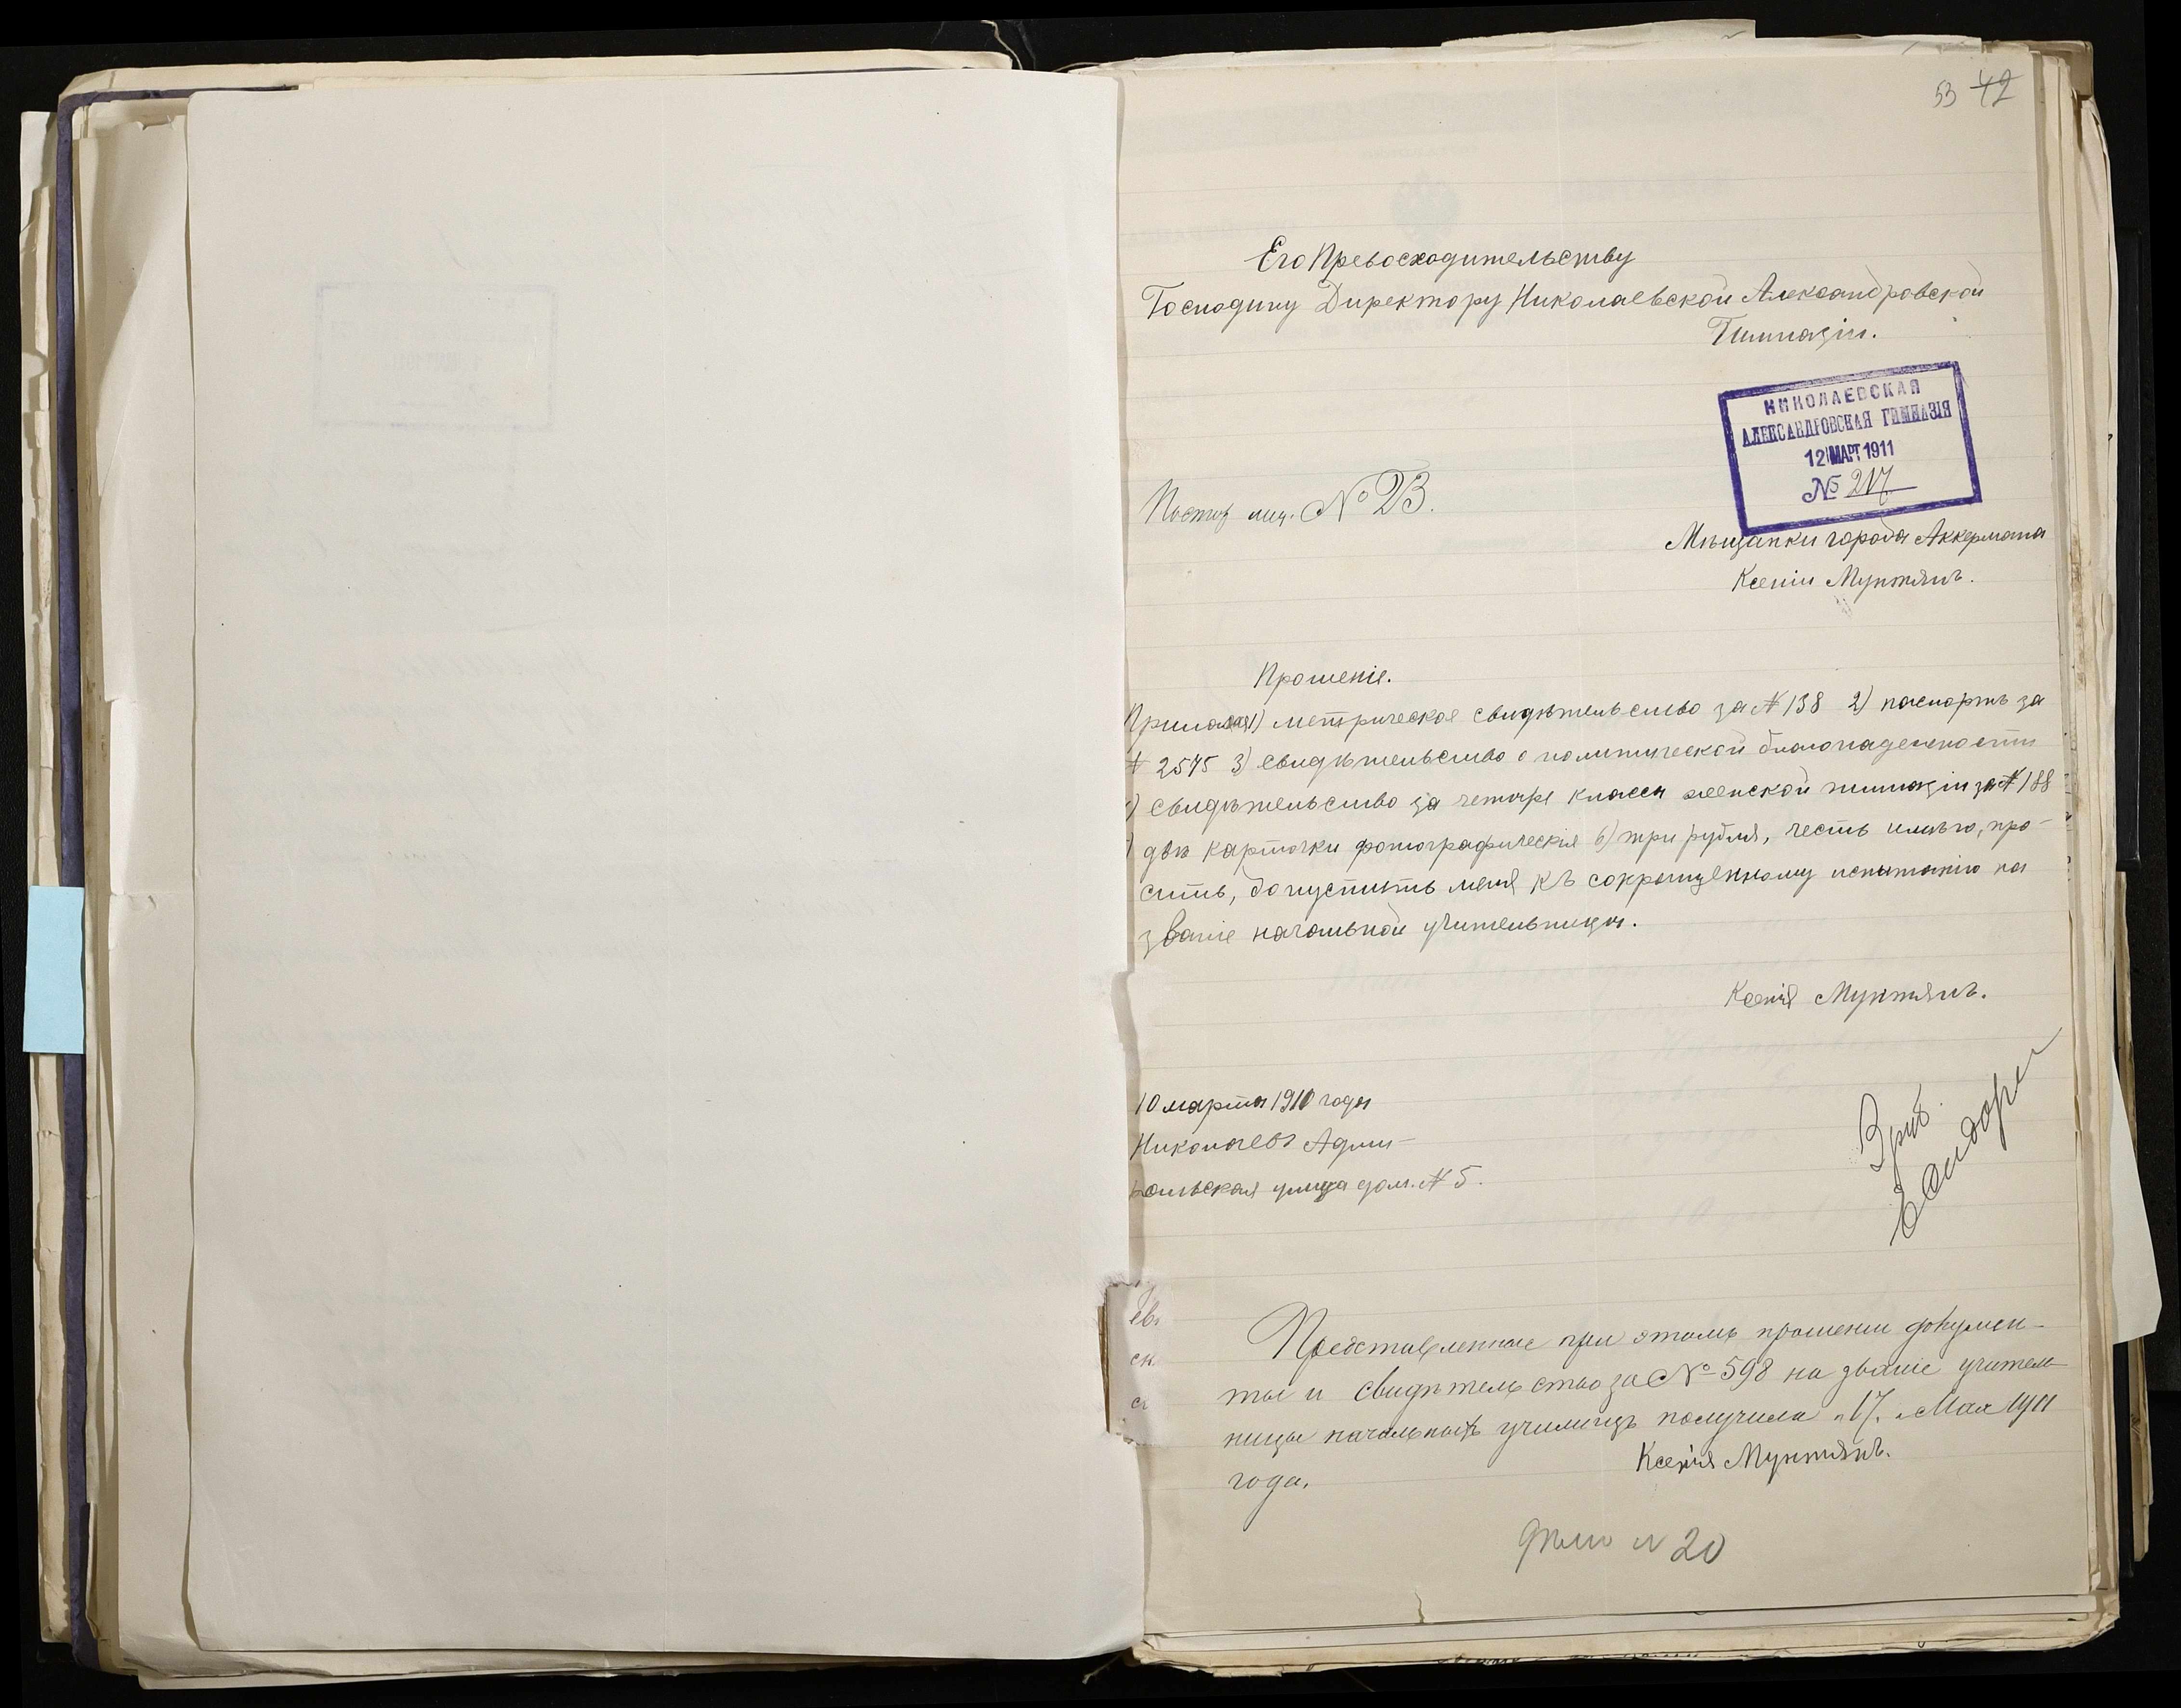 53 42
Его Превосходительству
Господину Директору Николаевской Александровской
Гимназіи.
НИКОЛАЕВСКАЯ
АЛЕКСАНДРОВСКАЯ ГИМНАЗІЯ
12 МАРТ 1911
№ 217
№ 23.
Мѣщанки города Аккермана
Ксеніи Мунтянъ.
Прошеніе.
Прилагая 1) метрическое свидѣтельство за № 138 2) паспортъ за
№ 2575 3) свидѣтельство о политической благонадежности
) свидѣтельство за четыре класса женской гимназіи за № 188
) двѣ карточки фотографическія 6) три рубля, честь имѣю, про-
сить, допустить меня къ сокращенному испытанію на
званіе начальной учительницы.
Ксенія Мунтянъ.
10 марта 1910 года
Николаевъ Адми-
ральская улица дом. № 5.
Представленные при этомъ прошении докумен-
ты и свидѣтельство за № 598 на званіе учитель
ницы начальныхъ училищъ получила „17„ Мая 1911
года.
Ксенія Мунтянъ.
дѣло № 20